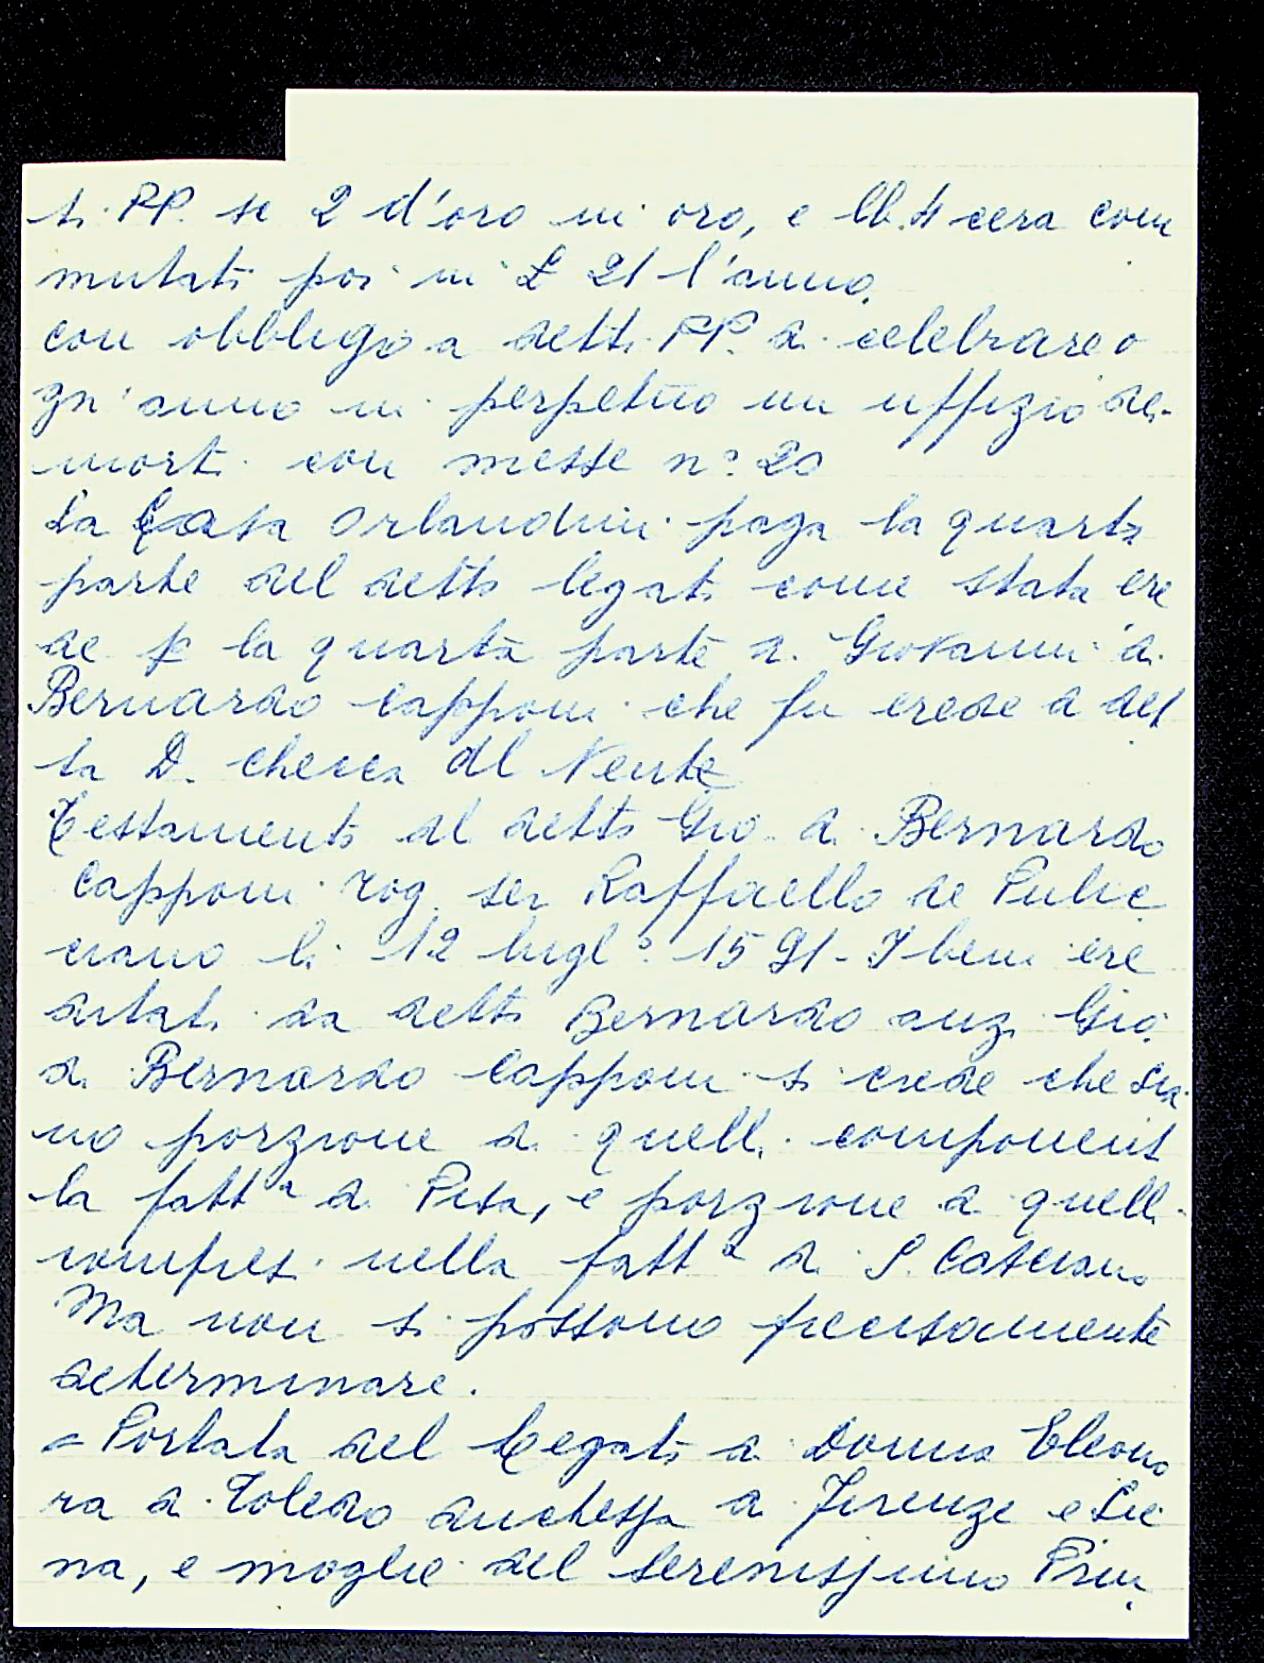 ti PP. sc 2 d'oro in oro, e lb. 4 cera com
mutati poi in £ 21 l'anno.
con obbligo a detti PP. di celebrare o
gn'anno in perpetuo un uffizio dei
morti con messe n.° 20
La Casa Orlandini paga la quarta
parte del detto legato come stata ere
de p la quarta parte di Giovanni di
Bernardo Capponi che fu erede di det
ta D. Checca del Vente
Testamento del detto Gio. di Bernardo
Capponi rog. ser Raffaello de Pulic
ciano li 12 lugl.° 1591 - I beni ere
ditati da detto Bernardo anzi Gio.
di Bernardo Capponi si crede che sia
no porzione di quelli componenti
la fatt.a di Pisa, e porzione di quelli
compresi nella fatt.a di S. Casciano
Ma non si possono precisamente
determinare.
= Portata del Legato di Donna Eleono
ra di Toledo duchessa di Firenze e Sie
na, e moglie del serenissimo Prin